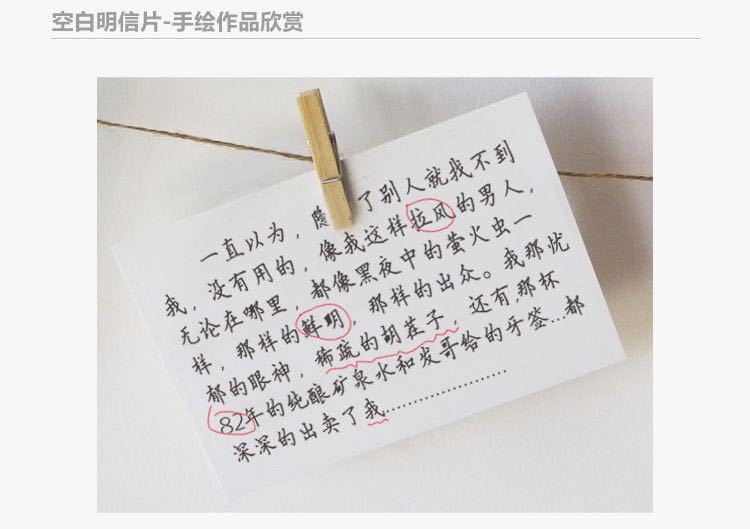 空白明信片-手绘作品欣赏
一直以为，隐了别人就找不到
我，没有用的，像我这样拉风的男人，
无论在哪里，都像黑夜中的萤火虫一
样，那样的鲜明，那样的出众。我那忧
郁的眼神，稀疏的胡茬子，还有那杯
82年的纯酿矿泉水和发哥给的牙签...都
深深的出卖了我.....................